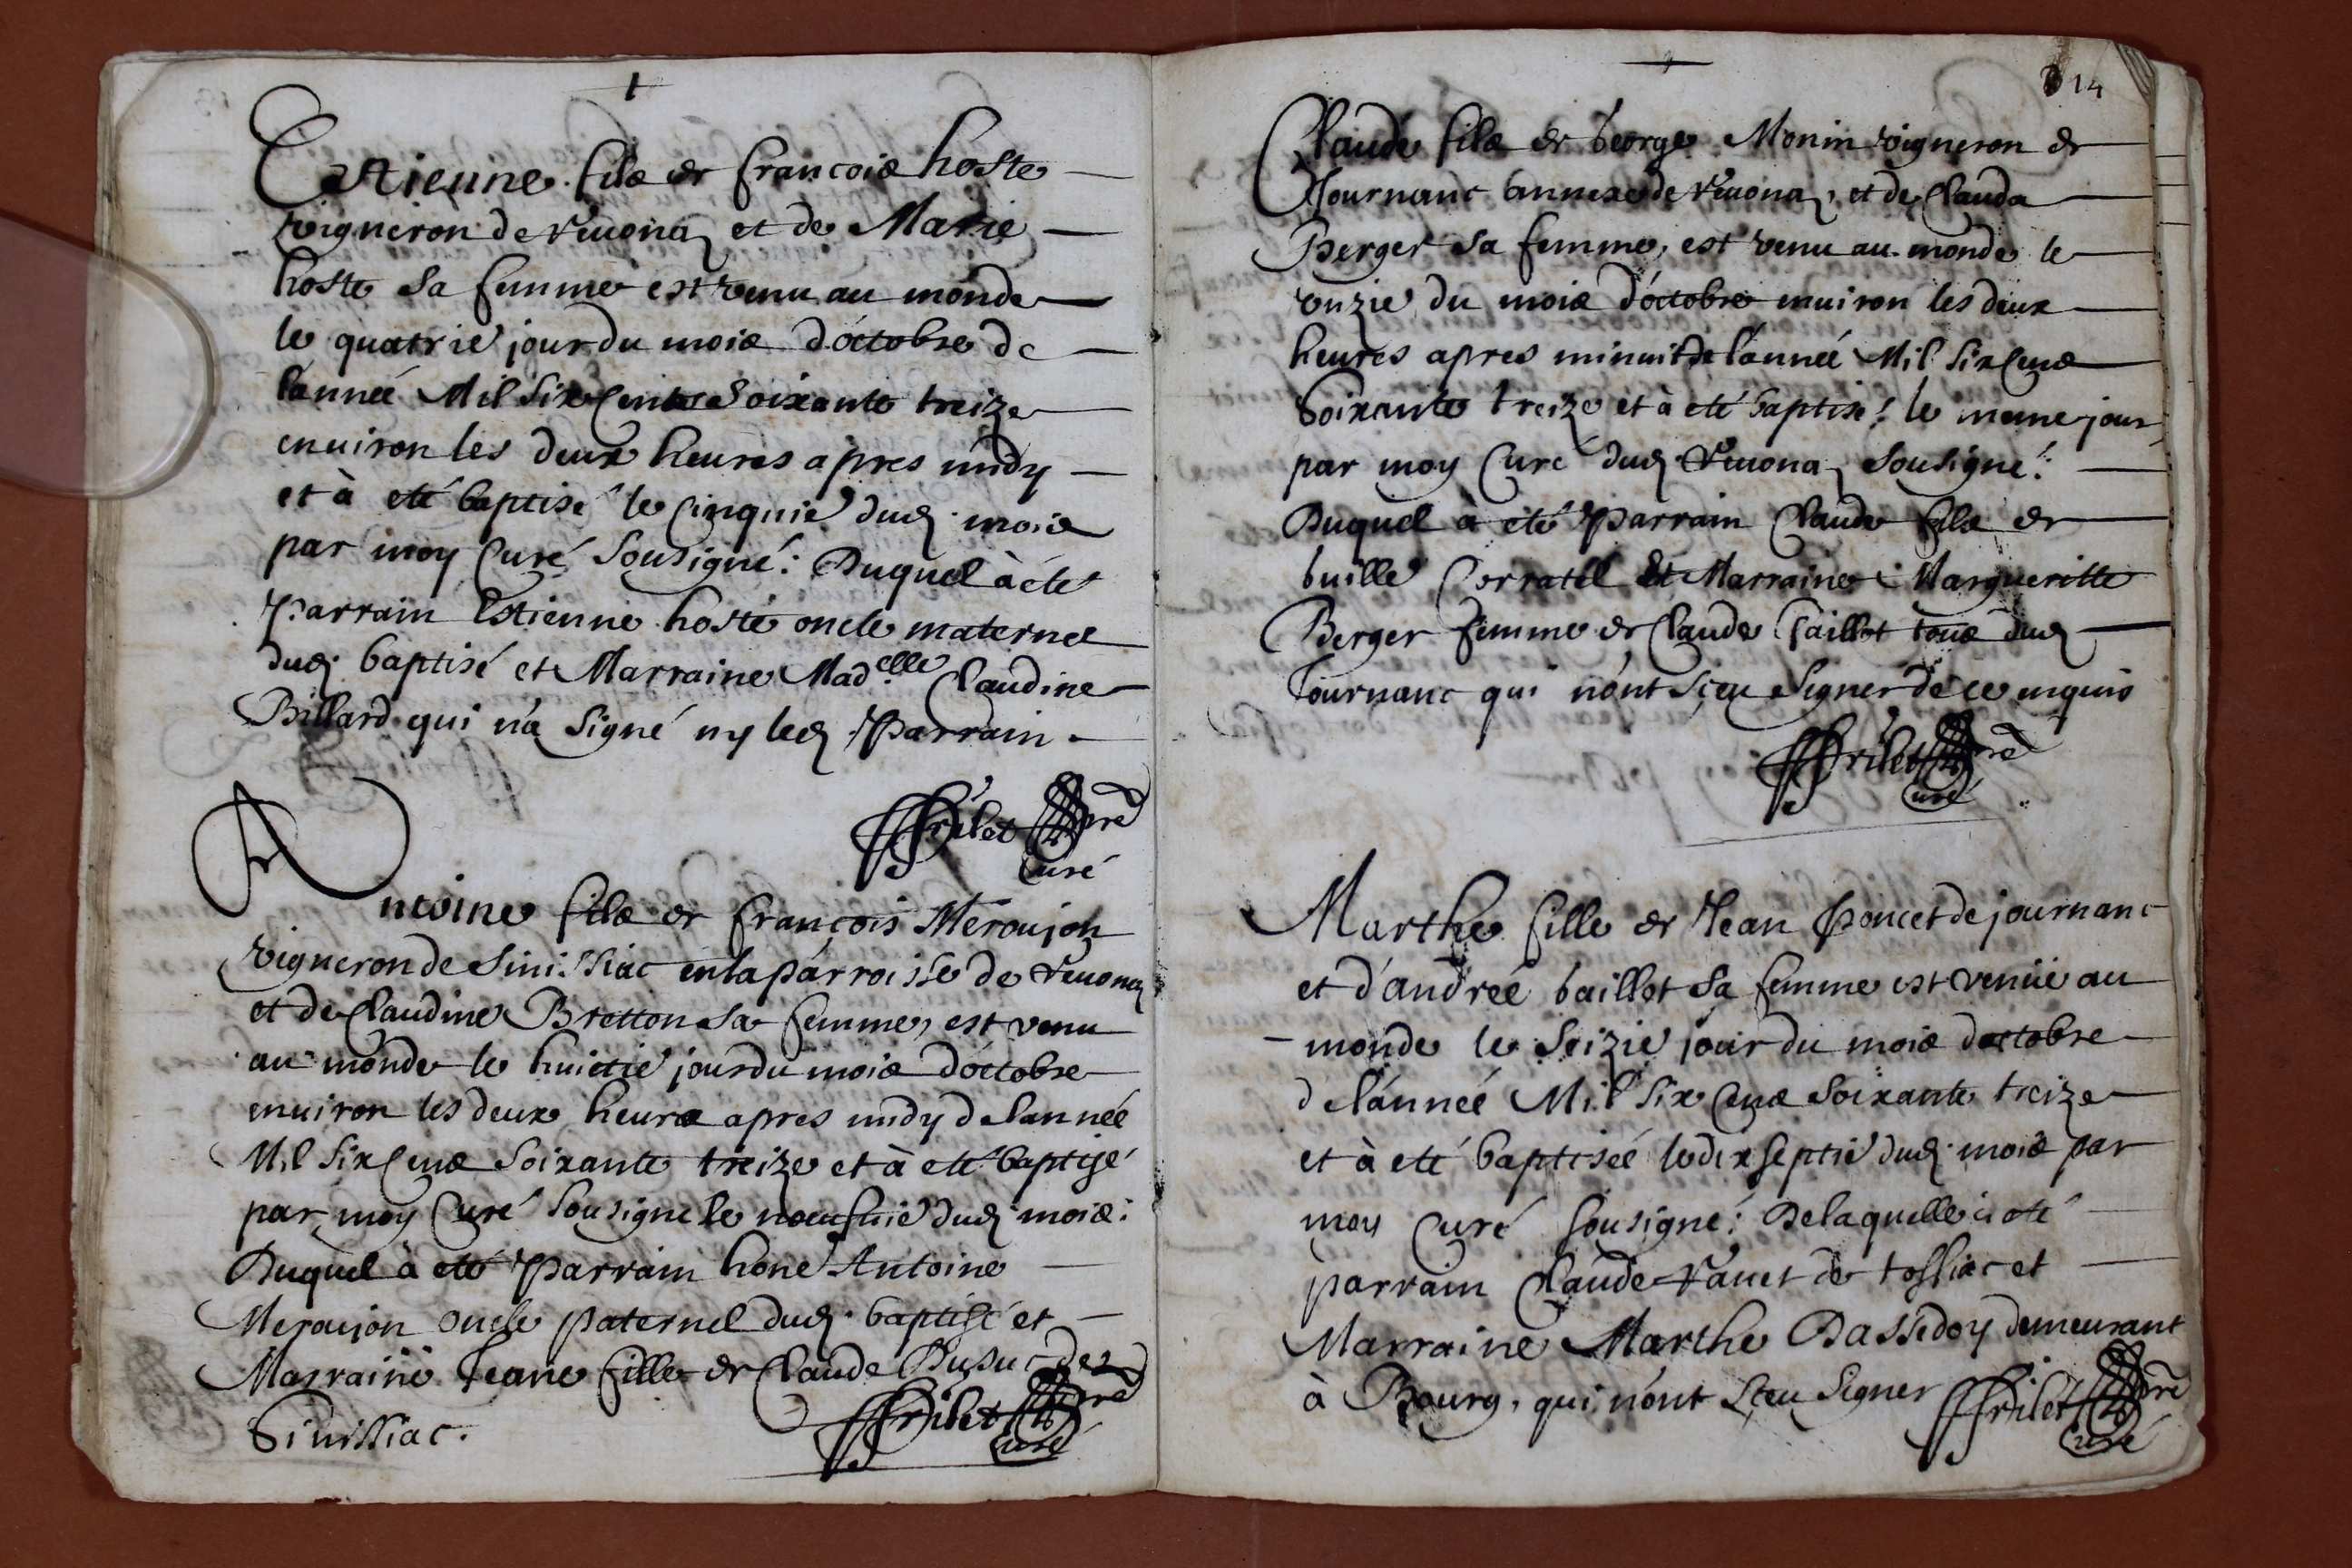 Estienne fils de francois hoste
vigneron de Reuona et de Marie
hoste sa femme est venu au monde
le quatrie jour du mois d'octobre de
lannée Mil Six Cents Soixante treize
enuiron les deux heures apres midy
et à eté baptisé le Cinquie dud. mois
par moy Curé Sousigné: Duquel à eté
Parrain Estienne hoste oncle maternel
dud. baptisé et Marraine Mad.elle Claudine
Billard qui n'a Signé ny led. Parrain.
Frilet pre
Curé
Antoine fils de françois Meroujon
vigneron de Sinissiac en la parroisse de Reuona
et de Claudine Bretton sa femme, est venu
au monde le huictie jour du mois d'octobre
enuiron les deux heures apres midy de lannée
Mil Six Cens Soixante treize et à eté baptisé
par moy Curé Sousigné le neufuie dud. mois:
Duquel à eté Parrain hone Antoine
Meroujon oncle paternel dud. baptisé et
Marraine Jeane fille de Claude Dusuc de
Sinissiac.
Frilet pre
Curé
14
Claude fils de George Monin vigneron de
Journanc annexe de Reuona, et de Clauda
Berger sa femme, est venu au monde le
onzie du mois d'octobre enuiron les deux
heures apres minuit de l'année Mil Six Cens
Soixante treize et à eté baptisé le meme jour
par moy Curé dud. Reuona Sousigné:
Duquel à eté Parrain Claude fils de
Guille Corratel Et Marraine Margueritte
Berger femme de Claude Gaillot tous dud.
Journanc qui n'ont Sçeu Signer de ce enquis
Frilet pre
Curé
Marthe fille de Jean Poncet de journanc
et d'andreé Gaillot Sa femme est venüe au
monde le Seizie jour du mois doctobre
de l'anneé Mil Six Cens Soixante treize
et à eté baptiseé le dix septie dud. mois par
moy Curé Sousigné: De laquelle à eté
parrain Claude Rauet de tossiac et
Marraine Marthe Dassedoy demeurant
à Bourg, qui n'ont Sceu Signer
Frilet pre
Curé